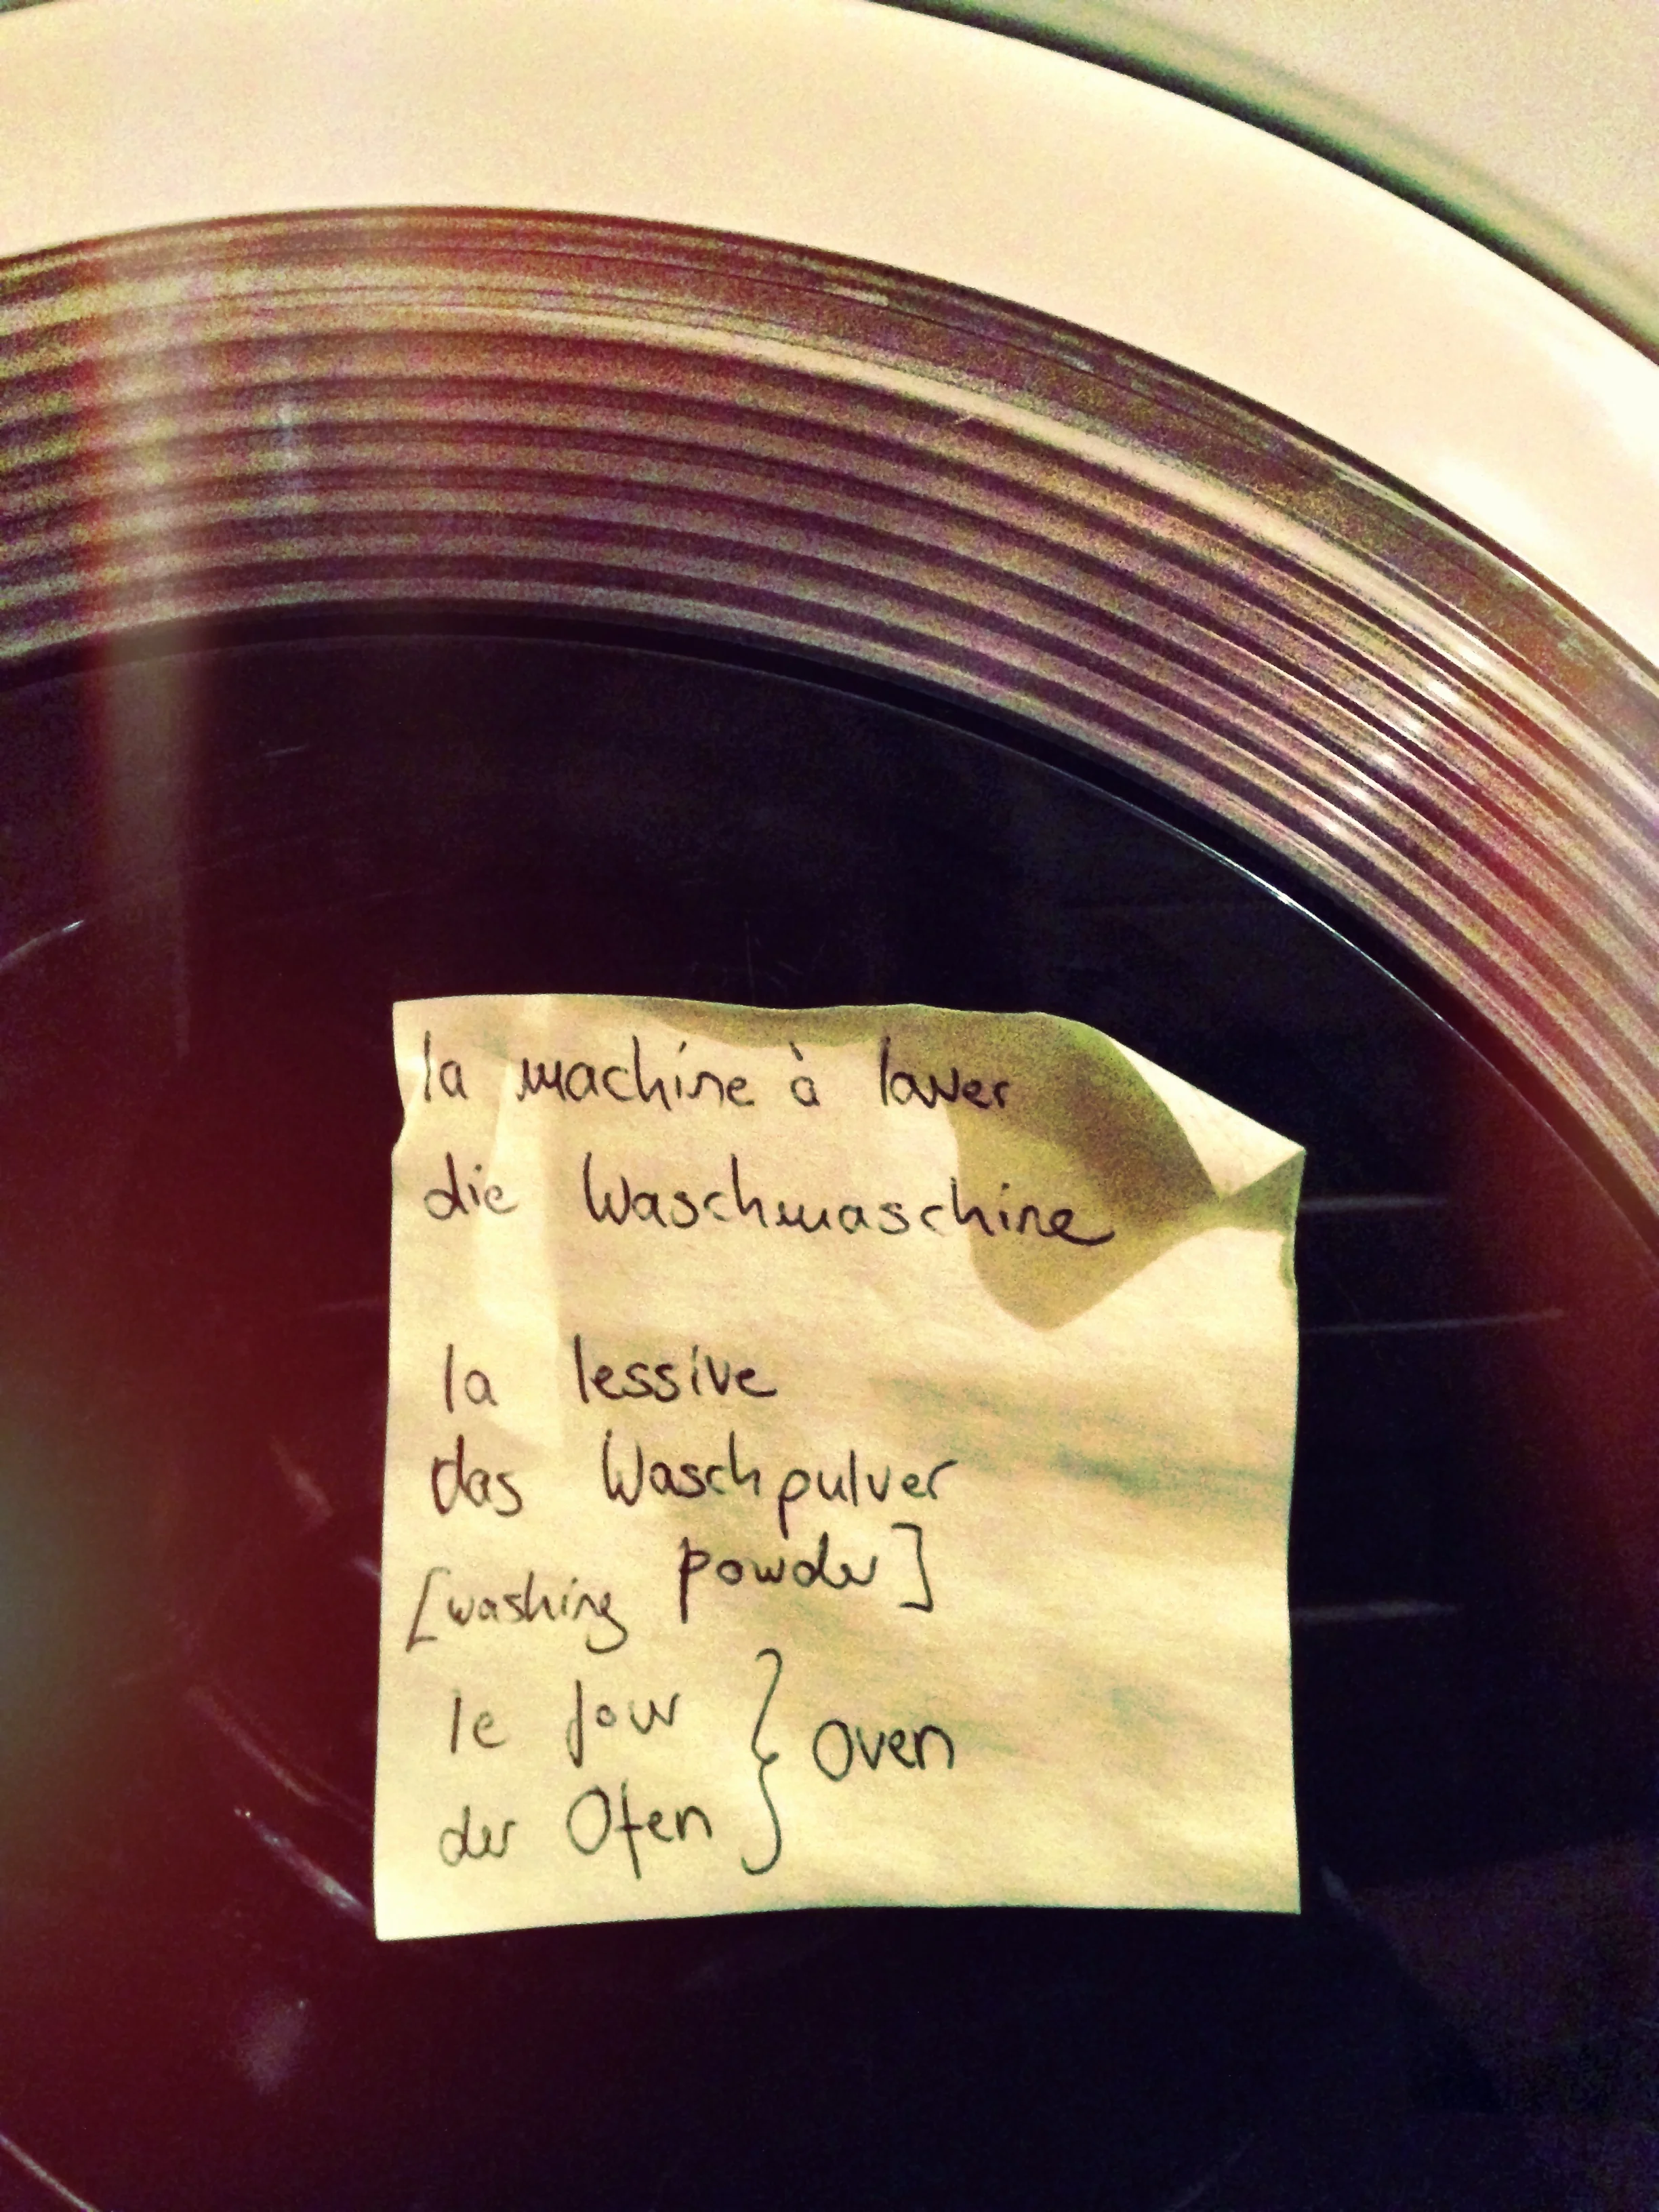 la machine à laver
die Waschmaschine
la lessive
das Waschpulver
[washing powder]
le four
der Ofen
} oven